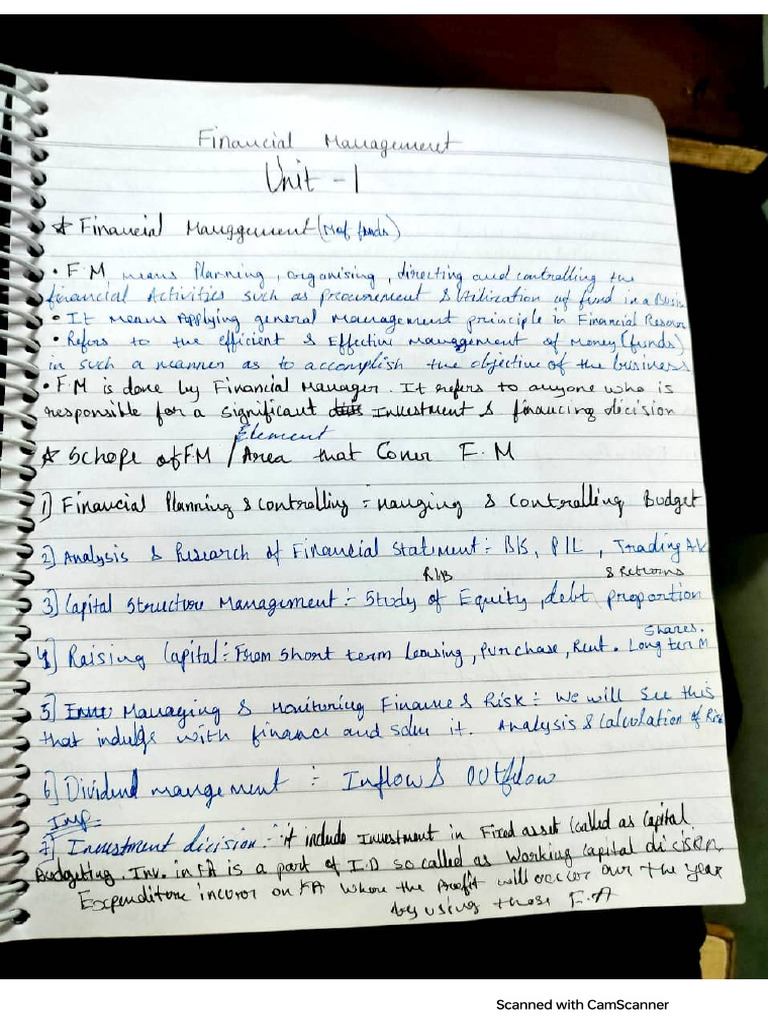 Financial Management
Unit - 1
* Financial Manggement (M of funds)
• F.M means Planning, organising, directing and controlling the
financial Activities such as procurement & Utilization of fund in a Busin
• It Means Applying general Management principle in Financial Resour
• Refers to the efficient & Effective Manggement of Money (funds)
in such a manner as to accomplish the objective of the business
• F.M is done by Financial Manager. It refers to anyone who is
responsible for a significant Investment & financing decision
Element
* Schope of FM / Area that Cover F.M
1] Financial Planning & controlling :- manging & Controlling Budget
2] Analysis & Research of Financial Statment :- B/S, P/L, Trading A/c
R/B & Returns
3] Capital Structure Management :- Study of Equity, debt proportion
Shares.
4] Raising Capital :- From short term Leasing, Purchase, Rent. Long term
5] Managing & Monitoring Finance & Risk :- We will see this
that indulge with finance and solve it. Analysis & Calculation of Risk
6] Dividend mangement :- Inflow & Outflow
Imp
7] Investment dicision :- it include Investment in Fixed asset (called as Capital
Budgeting. Inv. in FA is a part of I.D so called as Working Capital dicision.
Expenditure incuror on FA where the Profit will occor our the year
by using those F.A
Scanned with CamScanner